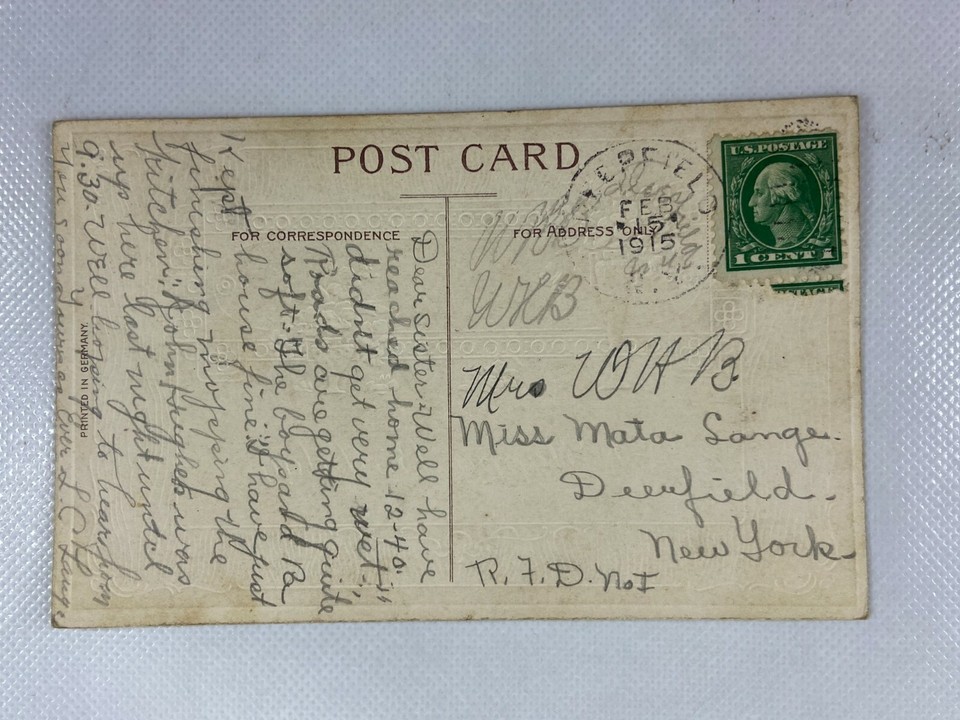 POST CARD
FOR CORRESPONDENCE
FOR ADDRESS ONLY
PRINTED IN GERMANY.
U.S. POSTAGE
1 CENT 1
POSTAGE
DEERFIEL
FEB
15
1915
N.Y.
WHB
Mrs WHB
Miss Mata Lange.
Deerfield.
New York
R. F. D. No I
Dear Sister:- Well have
reached home 12-40.
didn't get very wet:,,
Roads are getting quite
soft:- The boys and Pa
house fine:,, I have just
finishing mopping the
kitchen:,, John was
up here last night until
9.30. Well hoping to hear from
you soon I
Ever L. C. Lange
Kept